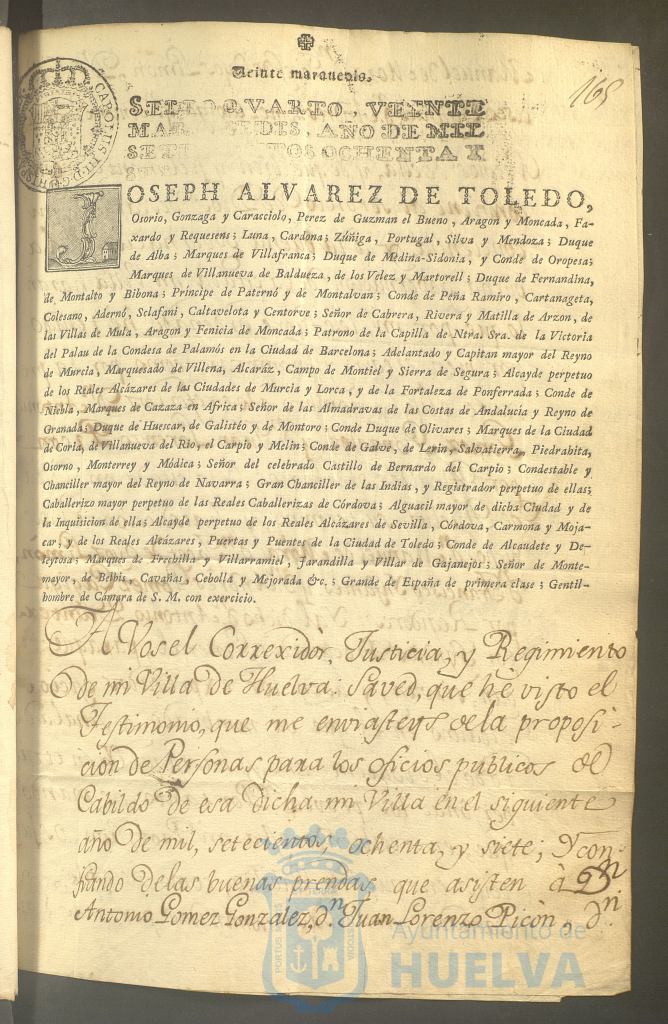 Veinte maravedis.
165
SELLO QVARTO, VEINTE
MARAVEDIS, AÑO DE MIL
SETECIENTOS OCHENTA Y
JOSEPH ALVAREZ DE TOLEDO,
Osorio, Gonzaga y Caracciolo, Perez de Guzman el Bueno, Aragon y Moncada, Fa-
xardo y Requesens; Luna, Cardona; Zúñiga, Portugal, Silva y Mendoza; Duque
de Alba; Marques de Villafranca; Duque de Medina-Sidonia, y Conde de Oropesa;
Marques de Villanueva de Baldueza, de los Velez y Martorell; Duque de Fernandina,
de Montalto y Bibona; Principe de Paternó y de Montalvan; Conde de Peña Ramiro, Cartanageta,
Colesano, Adernó, Sclafani, Caltavelota y Centorve; Señor de Cabrera, Rivera y Matilla de Arzon, de
las Villas de Mula, Aragon y Fenicia de Moncada; Patrono de la Capilla de Ntra. Sra. de la Victoria
del Palau de la Condesa de Palamós en la Ciudad de Barcelona; Adelantado y Capitan mayor del Reyno
de Murcia, Marquesado de Villena, Alcaráz, Campo de Montiel y Sierra de Segura; Alcayde perpetuo
de los Reales Alcázares de las Ciudades de Murcia y Lorca, y de la Fortaleza de Ponferrada; Conde de
Niebla, Marques de Cazaza en Africa; Señor de las Almadravas de las Costas de Andalucia y Reyno de
Granada; Duque de Huescar, de Galistéo y de Montoro; Conde Duque de Olivares; Marques de la Ciudad
de Coria, de Villanueva del Rio, el Carpio y Melin; Conde de Galve, de Lerin, Salvatierra, Piedrahita,
Osorno, Monterrey y Módica; Señor del celebrado Castillo de Bernardo del Carpio; Condestable y
Chanciller mayor del Reyno de Navarra; Gran Chanciller de las Indias, y Registrador perpetuo de ellas;
Caballerizo mayor perpetuo de las Reales Caballerizas de Córdova; Alguacil mayor de dicha Ciudad y de
la Inquisicion de ella; Alcayde perpetuo de los Reales Alcázares de Sevilla, Córdova, Carmona y Moja-
car, y de los Reales Alcázares, Puertas y Puentes de la Ciudad de Toledo; Conde de Alcaudete y De-
leytosa; Marques de Frechilla y Villarramiel, Jarandilla y Villar de Gajanejos; Señor de Monte-
mayor, de Belbis, Cavañas, Cebolla y Mejorada &c.; Grande de España de primera clase; Gentil-
hombre de Cámara de S. M. con exercicio.
A Vos el Correxidòr, Justicia, y Regimiento
de mi Villa de Huelva: Saved, que hè visto el
Testimonio, que me enviasteys de la proposi-
cion de Personas para los oficios publicos del
Cabildo de esa dicha mi Villa en el siguiente
año de mil, setecientos, ochenta, y siete; Y con-
fiando de las buenas prendas, que asisten à Dn.
Antonio Gomez Gonzalez, dn. Juan Lorenzo Picòn, dn.
Ayuntamiento de
HUELVA